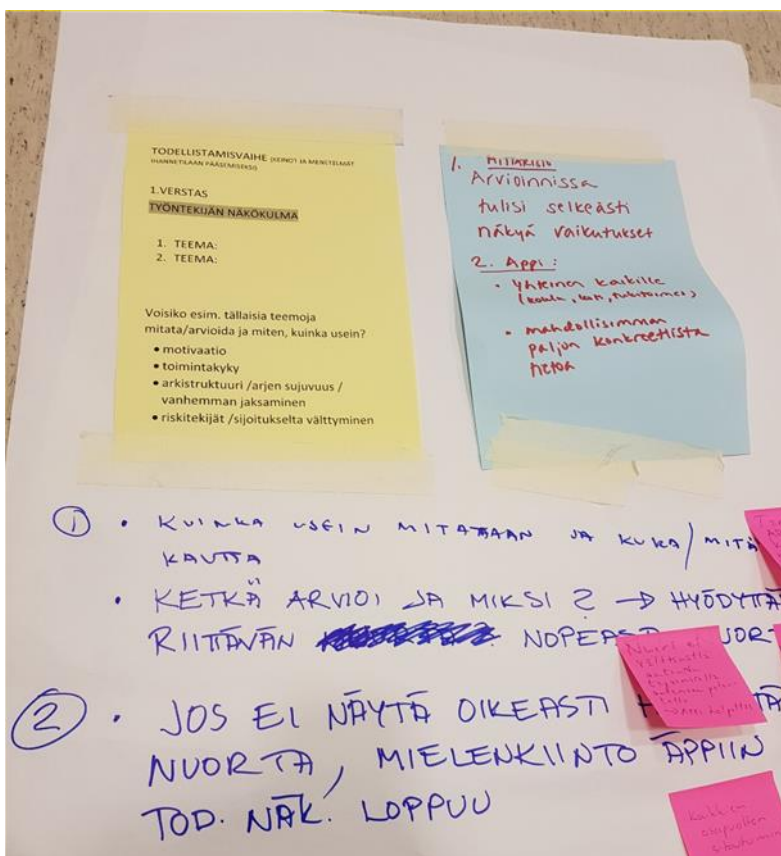 TODELLISTAMISVAIHE (KEINOT JA MENETELMÄT
IHANNETILAAN PÄÄSEMISEKSI)
1.VERSTAS
TYÖNTEKIJÄN NÄKÖKULMA
1. TEEMA:
2. TEEMA:
Voisiko esim. tällaisia teemoja
mitata/arvioida ja miten, kuinka usein?
• motivaatio
• toimintakyky
• arkistruktuuri /arjen sujuvuus /
vanhemman jaksaminen
• riskitekijät /sijoitukselta välttyminen
1. MITTARISTO
Arvioinnissa
tulisi selkeästi
näkyä vaikutukset
2. Appi:
• yhteinen kaikille
(koulu, koti, tukitoimet)
• mahdollisimman
paljon konkreettista
tietoa
① • KUINKA USEIN MITATAAN JA KUKA/MITÄ
KAUTTA
• KETKÄ ARVIOI JA MIKSI? → HYÖDYTTÄ
RIITTÄVÄN NOPEAST
② • JOS EI NÄYTÄ OIKEASTI
NUORTA, MIELENKIINTO ÄPPIIN
TOD. NÄK. LOPPUU
Nuori ei
Kaikkien
osapuolten
sitoutumin